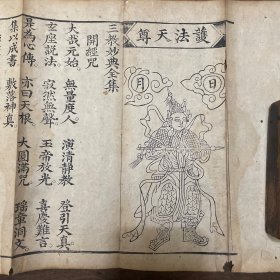 護法天尊
日
月
三教妙典全集
開經咒
大哉元始 無量度人 演清靜教 登引天真
玄座說法。 寂無聲 玉帝放光 喜慶難言
為心傳 亦曰天根 大圓滿咒 瑶章洞文
集以成書 敷落神真